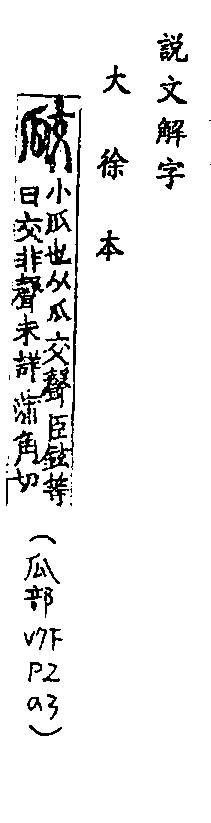 説文解字
大徐本
㼎
小瓜也从瓜交聲臣鉉等
曰交非聲未詳蒲角切
(瓜部
V7下
P2
a3)